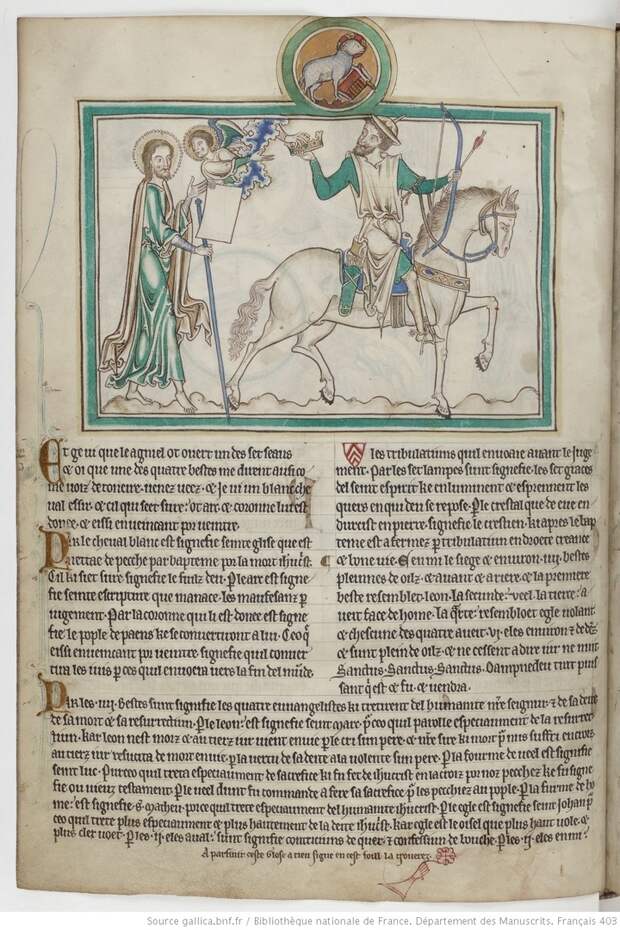 Et ge vi que le agniel ot overt un des set seaus
e oi que une des quatre bestes me dirent ausi co
me voiz de toneire. venez veez. e je vi un blanc che
val e sur. e cil qui seet sure. ot arc. e coronne lui est
donee. e eissi en veincant por veintre.
Par le cheval blanc est signefie seinte glise que est
nettae de pecche par bapteme por la mort
Cil ki siet sure signefie le fiulz deu. Ple arc est signe
fie seinte escripture que manace. les maufesanz p
iugement. Par la coronne qui li est donee est signe
fie. le pople de paens ke se convertiront a lui. Ceo q̃
eissi en veincant por veintre. signefie quil
tra les iuis p ces quil enveiera vers la fin del munde.
les tribulatiuns quil enveiat avant le iuge
ment. Par les set lampes sunt signefie. les set graces
del seint espirit ke enluminent e esprennent les
quers en qui deu se repose. Ple cristal que de eue en
durcist en pierre. signefie le crestien. ki apres le bap
teme est afermez p tribulatiun en dreite creance
e bone vie. En mi le siege e environ .iiii. bestes
pleinnes de oilz. e avant e ariere. e la premiere
beste resemblet leon. la secunde. veel. la tierce. a
veit face de home. la q̃rte. resembloet egle volant
e chescune des quatre aveit .vi. eles environ & dedẽz
e sunt plein de oilz. e ne cessent a dire iur ne nuit
Sanctus. Sanctus. Sanctus. Dampnedeu tut puis
sant q̃ est e fu. e vendra.
Par les .iiii. bestes sunt signefie les quatre evvangelistes ki tretent del humanite nr̃e seignur & de sa deite
de sa mort e sa resurrectiun. Ple leon. est signefie seint marc. p̃ ceo quil parolle especiaument de la resurrec
tiun. Kar leon nest morz e au tierz iur vient en vie ple cri sun pere. e nr̃e sire ki mort p̃ nus suffri en croiz.
au tierz iur resuscita de mort en vie. p la vertu de sa deite a la volente sun pere. P la fourme de veel est signefie
seint luc. Pur ceo quil treta especiaument de sacrefice ki fu fet de ihucrist en la croiz por noz pecchez ke fu signe
fie ou vieuz testament. P le veel dunt fu commande a fere sa sacrefice p̃ les pecchez au pople. P la furme de ho
me. est signefie s. matheu. por ce quil treta especiaument del humanite ihucrist. P le egle est signefie seint iohan p̃
ceo quil trete plus especiaument e plus hautement de la deite Kar egle est le oisel que plus haut vole. e
plus cler voet. P les .ii. eles aval. sunt signifie contriciuns de quer. & confessiun de bouche. P les .ii. eles en mi.
A parfinir ceste glose a tien signe en cest foill la troverez.
Source gallica.bnf.fr / Bibliothèque nationale de France. Département des Manuscrits. Français 403